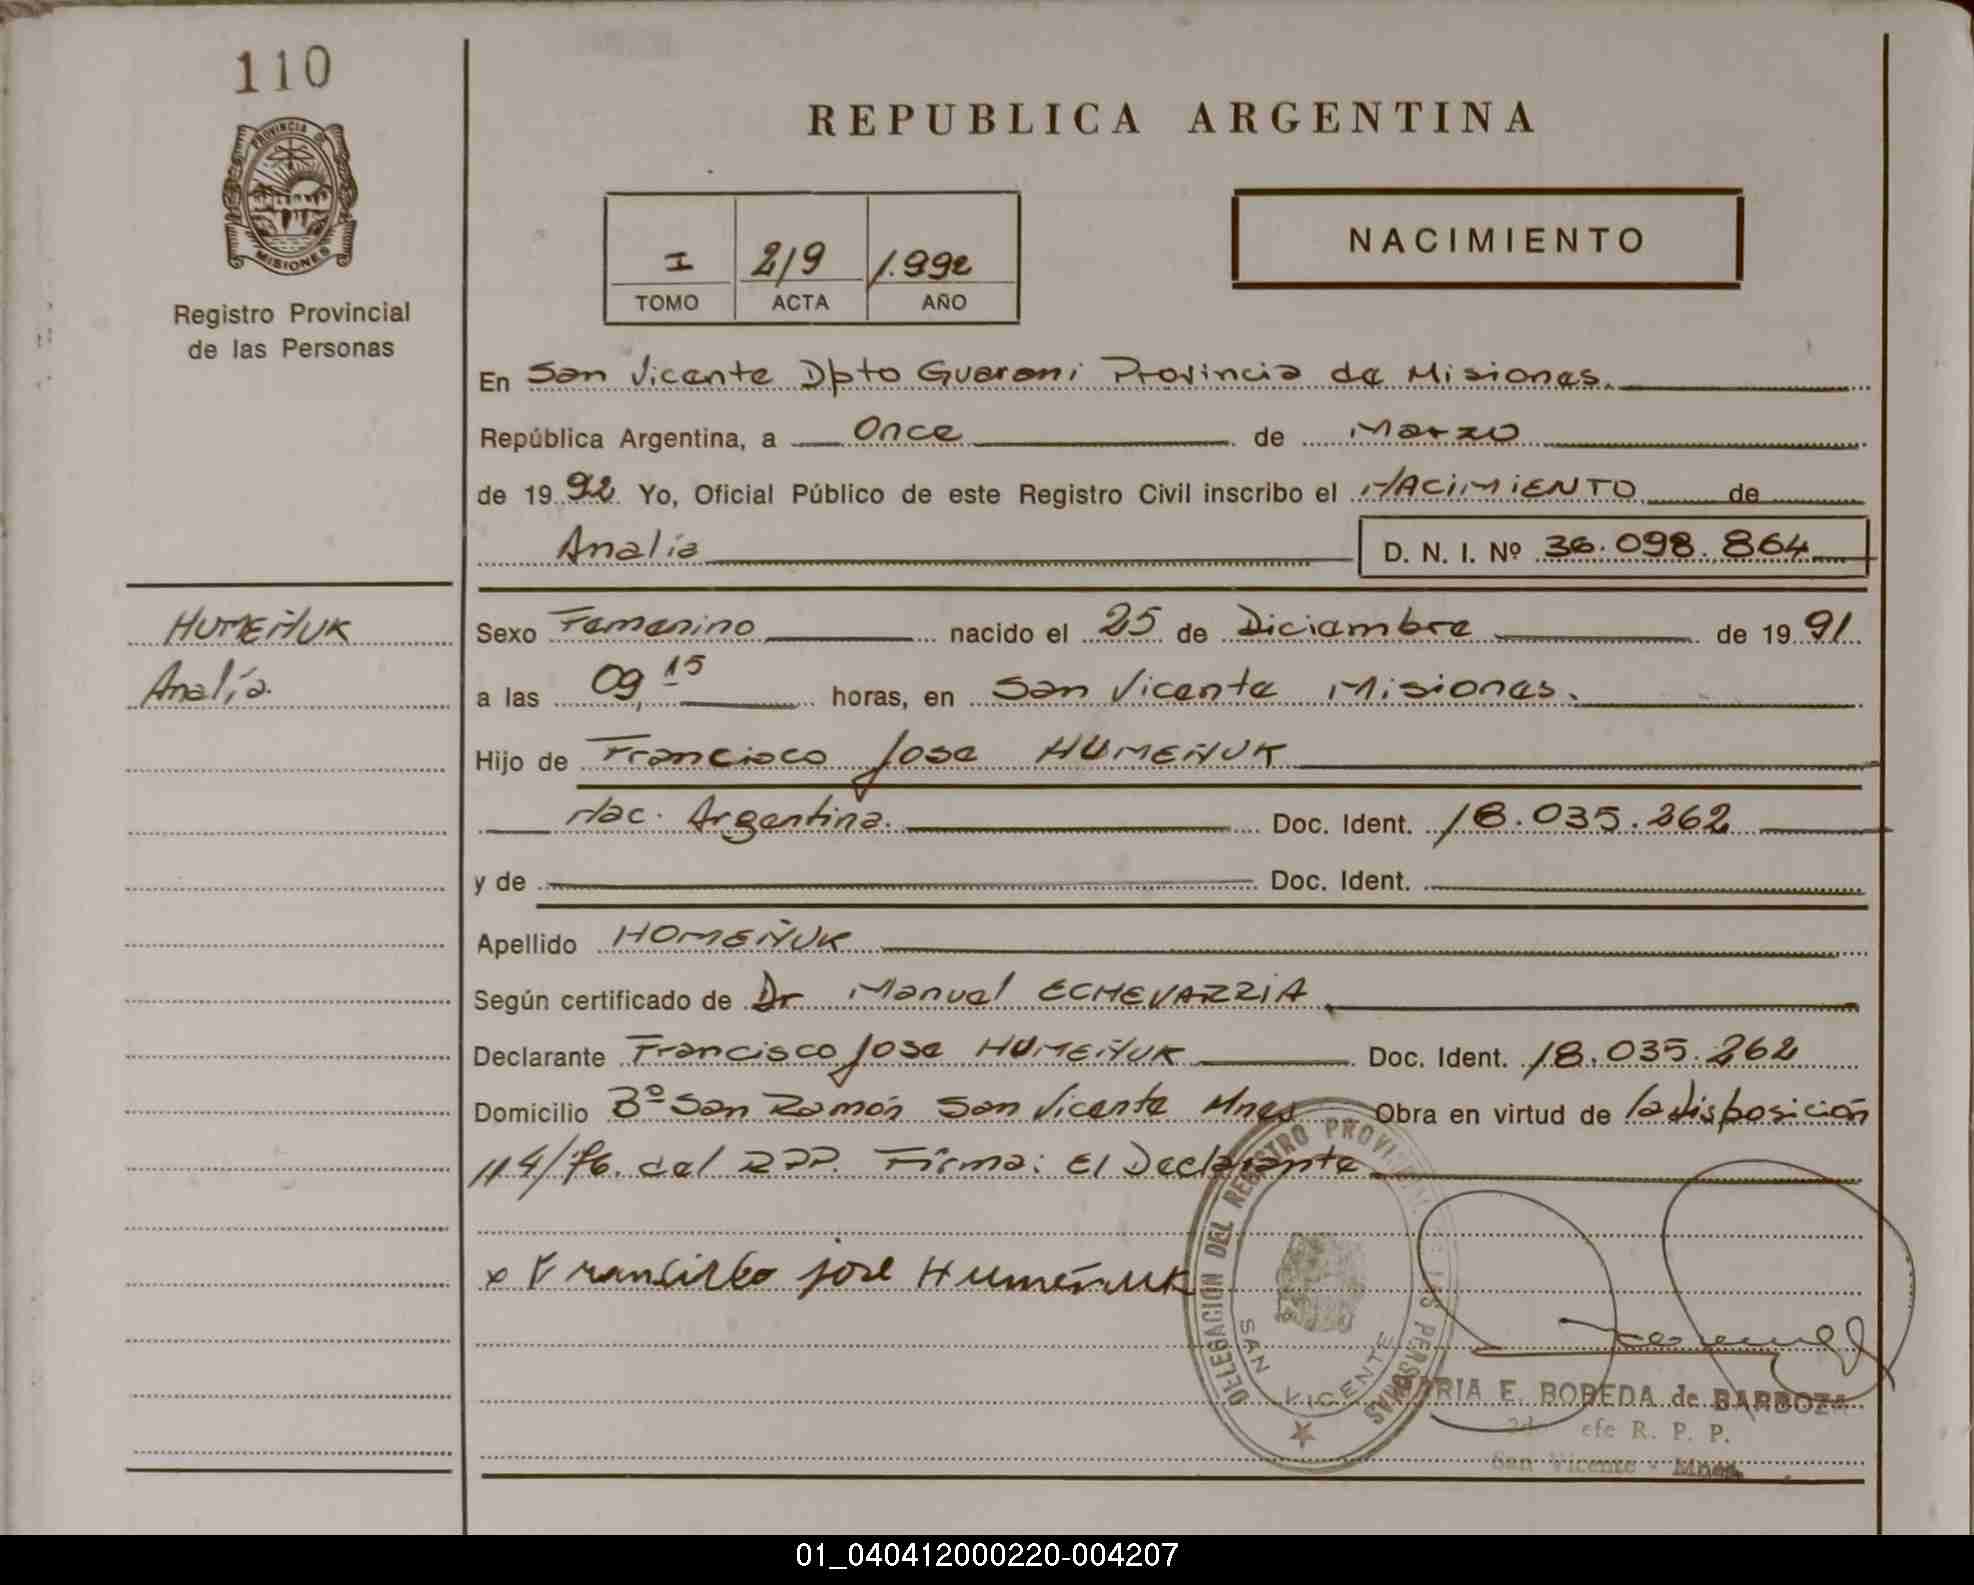 110
PROVINCIA DE
MISIONES
Registro Provincial
de las Personas
REPUBLICA ARGENTINA
I 219 1.992
TOMO ACTA AÑO
NACIMIENTO
En San Vicente Dpto Guarani Provincia de Misiones.
República Argentina, a Once de Marzo
de 1992 Yo, Oficial Público de este Registro Civil inscribo el NACIMIENTO de
Analía D. N. I. Nº 36.098.864
HUMEÑUK
Analía.
Sexo Femenino nacido el 25 de Diciembre de 1991
a las 09,15 horas, en San Vicente Misiones.
Hijo de Francisco Jose HUMEÑUK
Nac. Argentina. Doc. Ident. 18.035.262
y de Doc. Ident.
Apellido HOMEÑUK
Según certificado de Dr Manuel ECHEVARRIA
Declarante Francisco Jose HUMEÑUK Doc. Ident. 18.035.262
Domicilio Bº San Ramón San Vicente Mnes Obra en virtud de la disposición
114/76. del RPP. Firma: El Declarante
x Francisco jose Humeñuk
DELEGACION DEL REGISTRO PROVINCIAL DE LAS PERSONAS
SAN VICENTE
MARIA E. BOBEDA de BARBOZA
2do efe R. P. P.
San Vicente - Mnes.
01_040412000220-004207